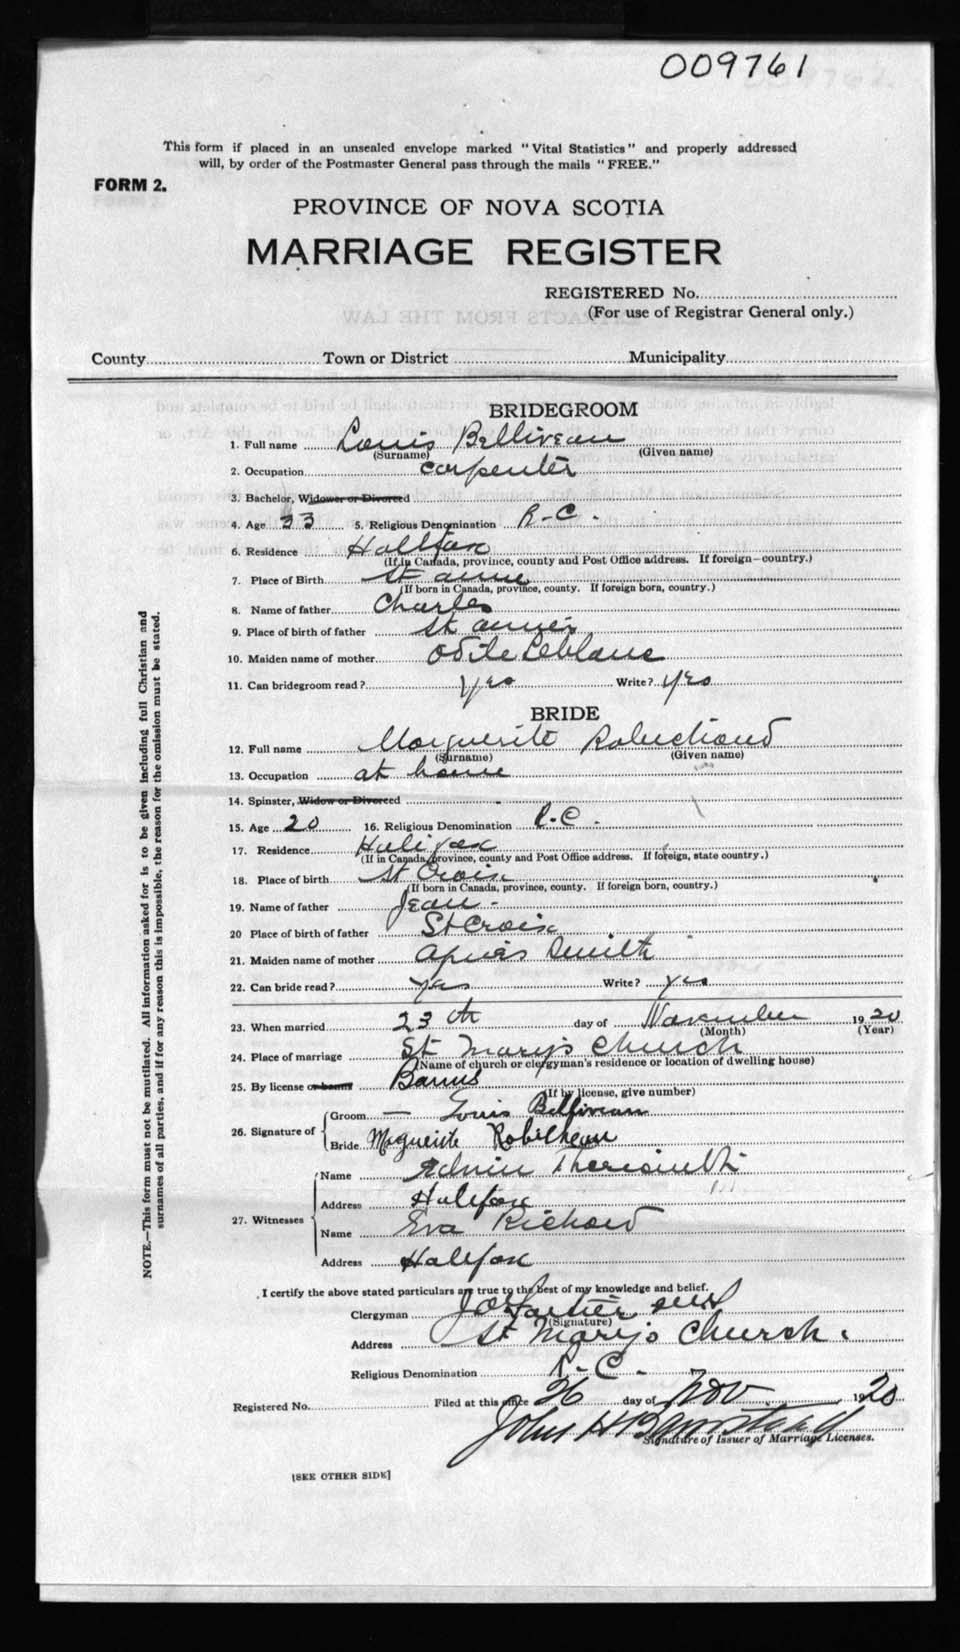 009761
This form if placed in an unsealed envelope marked "Vital Statistics" and properly addressed
will, by order of the Postmaster General pass through the mails "FREE."
FORM 2.
PROVINCE OF NOVA SCOTIA
MARRIAGE REGISTER
REGISTERED No.
(For use of Registrar General only.)
County Town or District Municipality
BRIDEGROOM
1. Full name Louis Belliveau
(Surname) (Given name)
2. Occupation carpenter
3. Bachelor, Widower or Divorced
4. Age 23 5. Religious Denomination R-C.
6. Residence Halifax
(If in Canada, province, county and Post Office address. If foreign—country.)
7. Place of Birth St Anne
(If born in Canada, province, county. If foreign born, country.)
8. Name of father Charles
9. Place of birth of father St
10. Maiden name of mother Odile Leblanc
11. Can bridegroom read? yes Write? yes
BRIDE
12. Full name Marguerite Robichaud
(Surname) (Given name)
13. Occupation at home
14. Spinster, Widow or Divorced
15. Age 20 16. Religious Denomination R.C.
17. Residence Halifax
(If in Canada, province, county and Post Office address. If foreign, state country.)
18. Place of birth St Croix
(If born in Canada, province, county. If foreign born, country.)
19. Name of father Jean-
20 Place of birth of father St Croix
21. Maiden name of mother
22. Can bride read? yes Write? yes
23. When married 23th day of November 1920
(Month) (Year)
24. Place of marriage St Mary's Church
(Name of church or clergyman's residence or location of dwelling house)
25. By license or banns Banns
(If by license, give number)
26. Signature of
Groom — Louis Belliveau
Bride Marguerite
27. Witnesses
Name
Address Halifax
Name Eva Richard
Address Halifax
I certify the above stated particulars are true to the best of my knowledge and belief.
Clergyman
(Signature)
Address St Mary's Church.
Religious Denomination R-C.
Registered No. Filed at this office 26 day of Nov 1920
John H Barnstead
Signature of Issuer of Marriage Licenses.
[SEE OTHER SIDE]
NOTE.—This form must not be mutilated. All information asked for is to be given including full Christian and
surnames of all parties, and if for any reason this is impossible, the reason for the omission must be stated.